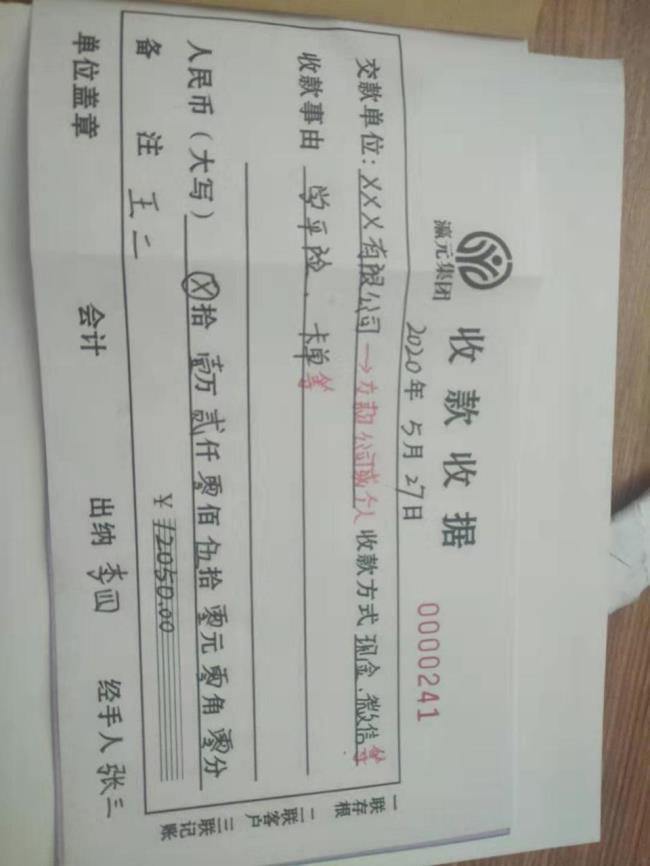 瀛元集团
收款收据
0000241
2020年5月27日
交款单位:XXX有限公司→方韵公司或个人 收款方式 现金、微信等
收款事由 学平险、卡单等
人民币(大写) ⓧ拾壹万贰仟零佰伍拾零元零角零分
¥12050.00
备 注 王二
单位盖章 会计 出纳 李四 经手人 张三
一联存根
二联客户
三联记账